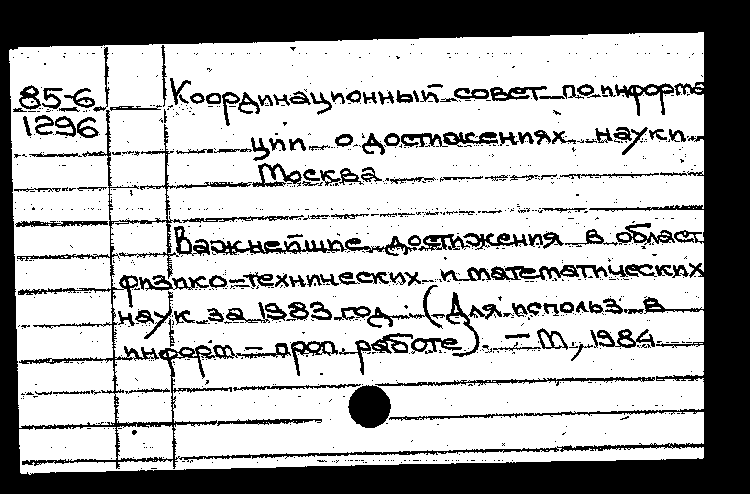 85-6
1296
Координационный совет по информа
ции о достижениях науки
Москва
Важнейшие достижения в област
физико-технических и математических
наук за 1983 год. (Для использ. в
информ - проп. работе). - М, 1984